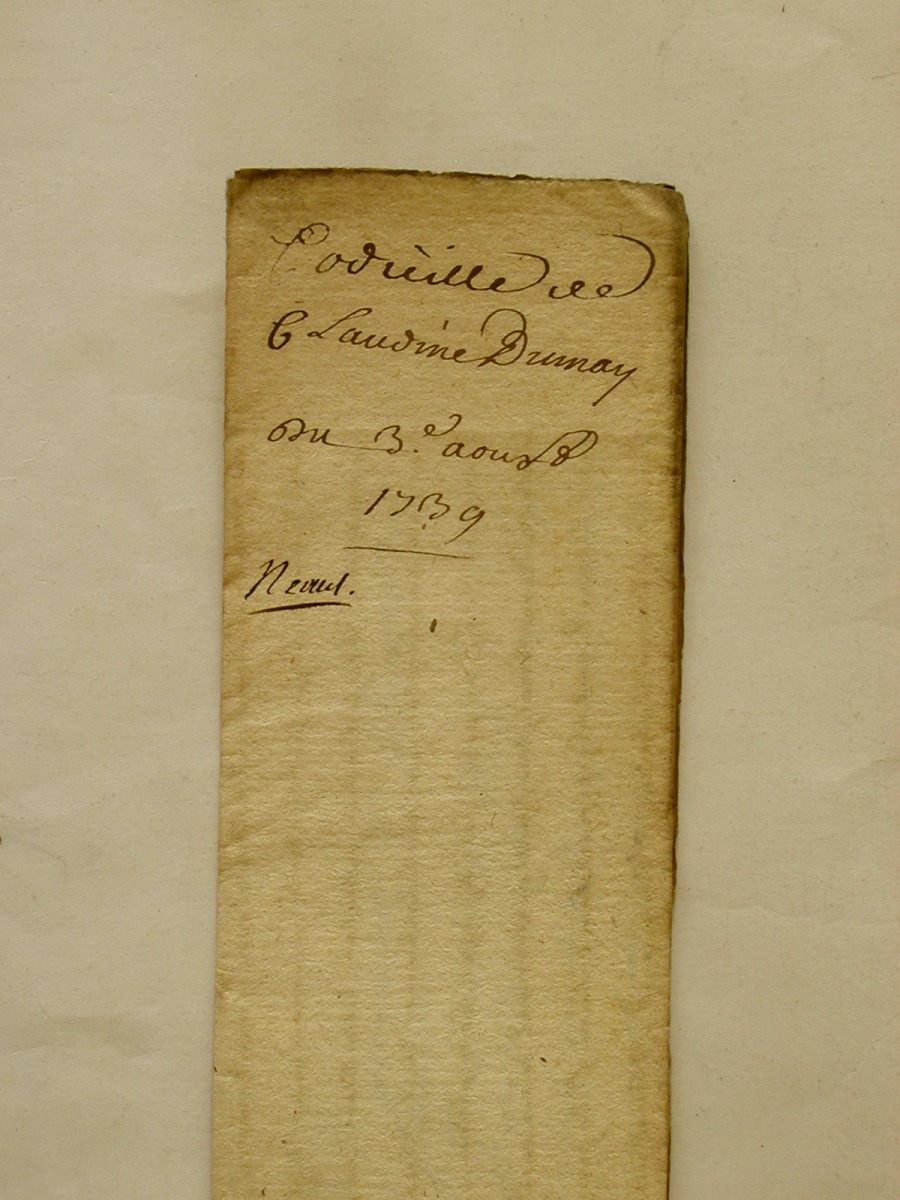 Codicille de
Claudine Dumay
Du 3.e aoust
1739
Neant.